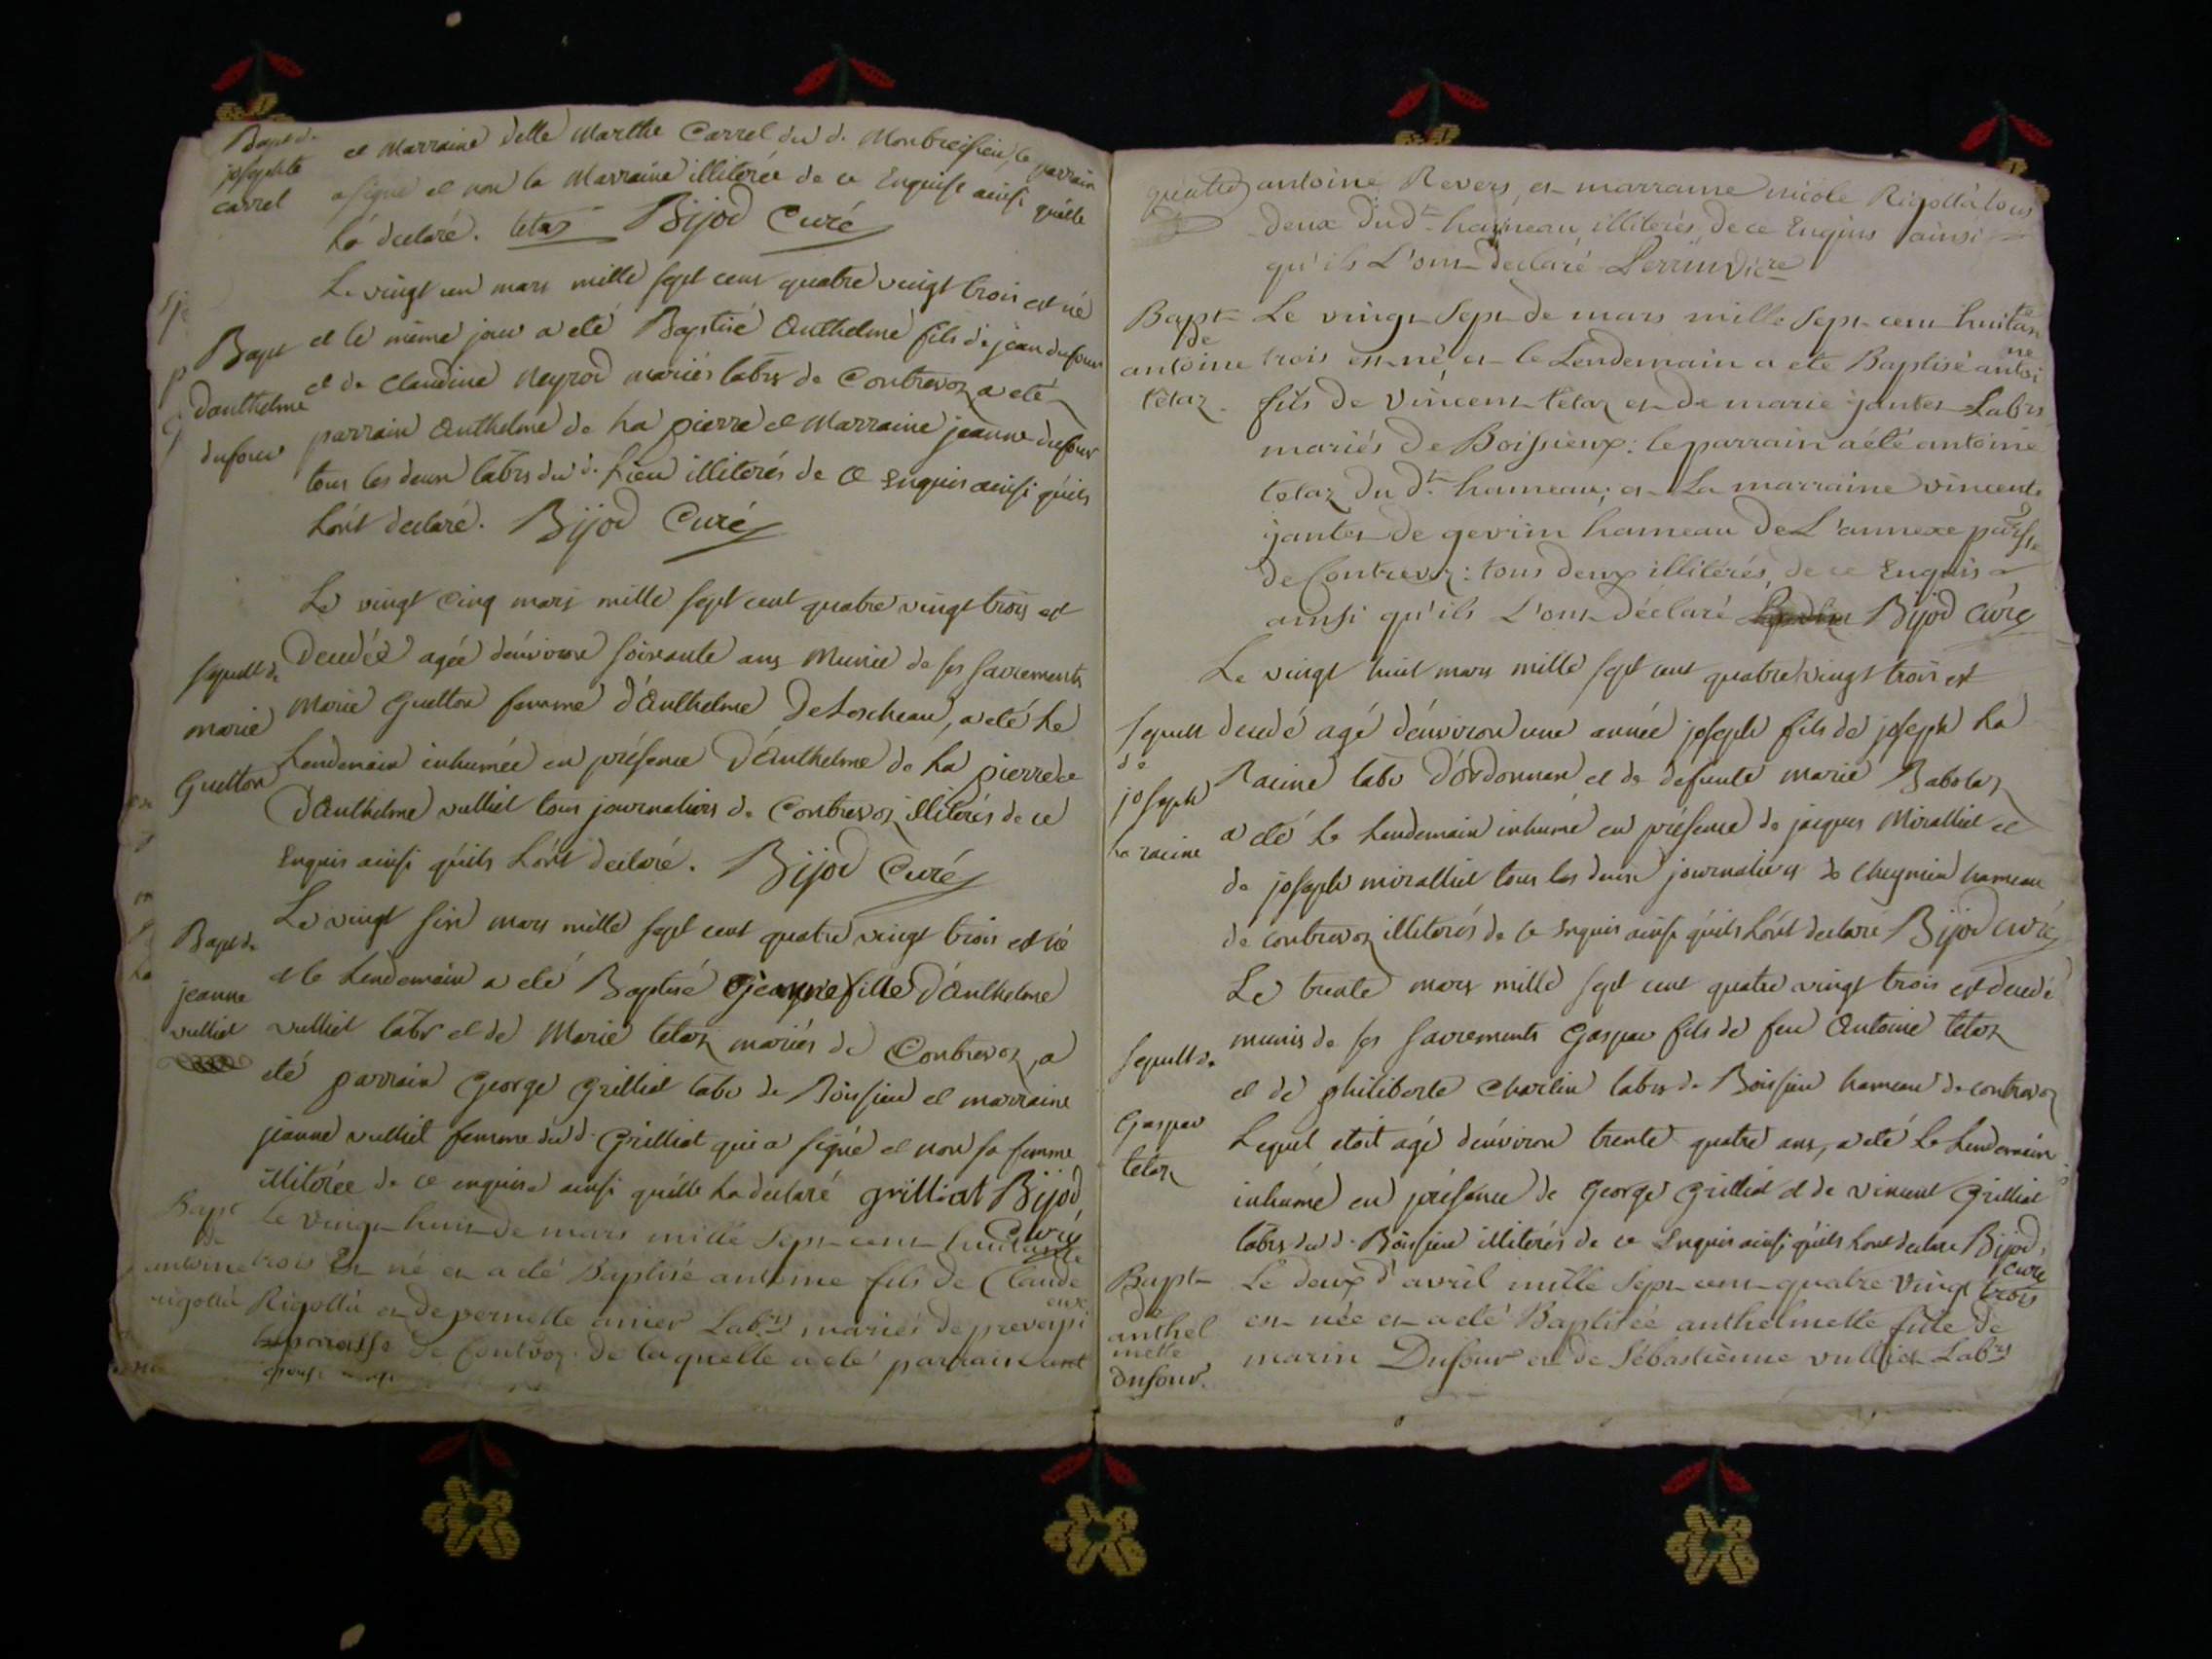 Bapt de
josephte
carrel
et Marraine delle Marthe Carrel du d. Montbreisieu, le parrain
a signé et non la Marraine illiterée de ce Enquise ainsi qu'elle
La declaré. tetaz Bijod Curé
Bapt
danthelme
dufour
Le vingt un mars mille sept cent quatre vingt trois est né
et le même jour a eté Baptisé Anthelme fils de jean dufour
et de Claudine Neyrod mariés labrs de Contrevoz, a eté
parrain Anthelme de La pierre et Marraine jeanne dufour
tous les deux labrs du d. Lieu illiterés de ce Enquis ainsi qu'ils
L'ont declaré. Bijod Curé
Sepult de
marie
Guetton
Le vingt cinq mars mille sept cent quatre vingt trois est
Decedée agée d'environ soixante ans Munie de ses sacrements
Marie Guetton femme d'Anthelme Deloscheau, a eté Le
Lendemain inhumée en présence d'Anthelme de La pierre et
d'Anthelme vulliet tous journaliers de Contrevoz illiterés de ce
Enquis ainsi qu'ils L'ont declaré. Bijod Curé
Bapt de
jeanne
vulliet
Le vingt six mars mille sept cent quatre vingt trois est né
et le Lendemain a eté Baptisé jeanne fille d'Anthelme
vulliet labr et de Marie tetaz mariés de Contrevoz, a
eté parrain George Grilliat labr de Boissieu et marraine
jeanne vulliet femme du d. Grilliat qui a signé et non sa femme
illiterée de ce enquise ainsi qu'elle La declaré grilliat Bijod
Curé
Bapt
de
antoine
rigollà
Le vingt huit de mars mille Sept cent huitante
trois Est né et a eté Baptisé antoine fils de Claude
Rigollà et de pernette amier Labrs mariés de preveysieux
parroisse de Contrevoz. de laquelle a eté parrain ant
quatre antoine Revers, et marraine nicole Rigollà tous
deux Dudt hameau, illiterés De ce Enquis ainsi
qu'ils L'ont declaré Perrin vicre
Bapt
de
antoine
tétaz.
Le vingt Sept de mars mille Sept cent huitante
trois est né, et le Lendemain a eté Baptisé antoine
fils de Vincent tetaz et de marie jantet Labrs
mariés De Boissieux: le parrain a été antoine
tetaz Du Dt. hameau; et La marraine vincente
jantet de gevrin hameau de L'annexe parsse
De Contrevoz: tous deux illitérés, de ce Enquis
ainsi qu'ils L'ont déclaré Bijod Curé
Sepult
de
joseph
La racine
Le vingt huit mars mille sept cent quatre vingt trois est
decedé agé d'environ une année joseph fils de joseph La
Racine labr d'ordonnan et de defunte marie Rabolaz
a eté le Lendemain inhumé en présence de jacques Miralliet et
de joseph miralliet tous les deux journaliers de Cheynieu hameau
de contrevoz illiterés de ce Enquis ainsi qu'ils L'ont declaré Bijod curé
Sepult de
Gaspar
tetaz
Le trente mars mille sept cent quatre vingt trois est decedé
munis de ses sacrements Gaspar fils de feu Antoine tetaz
et de philiberte Charlin labrs de Boissieu hameau de contrevoz
Lequel etoit agé d'environ trente quatre ans, a eté Le Lendemain
inhumé en présence de George Grilliat et de vincent Grilliat
labrs du d. Boissieu illiterés de ce Enquis ainsi qu'ils L'ont declaré Bijod
Curé
Bapt
de
anthel
mette
dufour.
Le deux d'avril mille Sept cent quatre vingt trois
est née et a eté Baptisée anthelmette fille de
marin Dufour et de Sébastienne vulliet Labrs